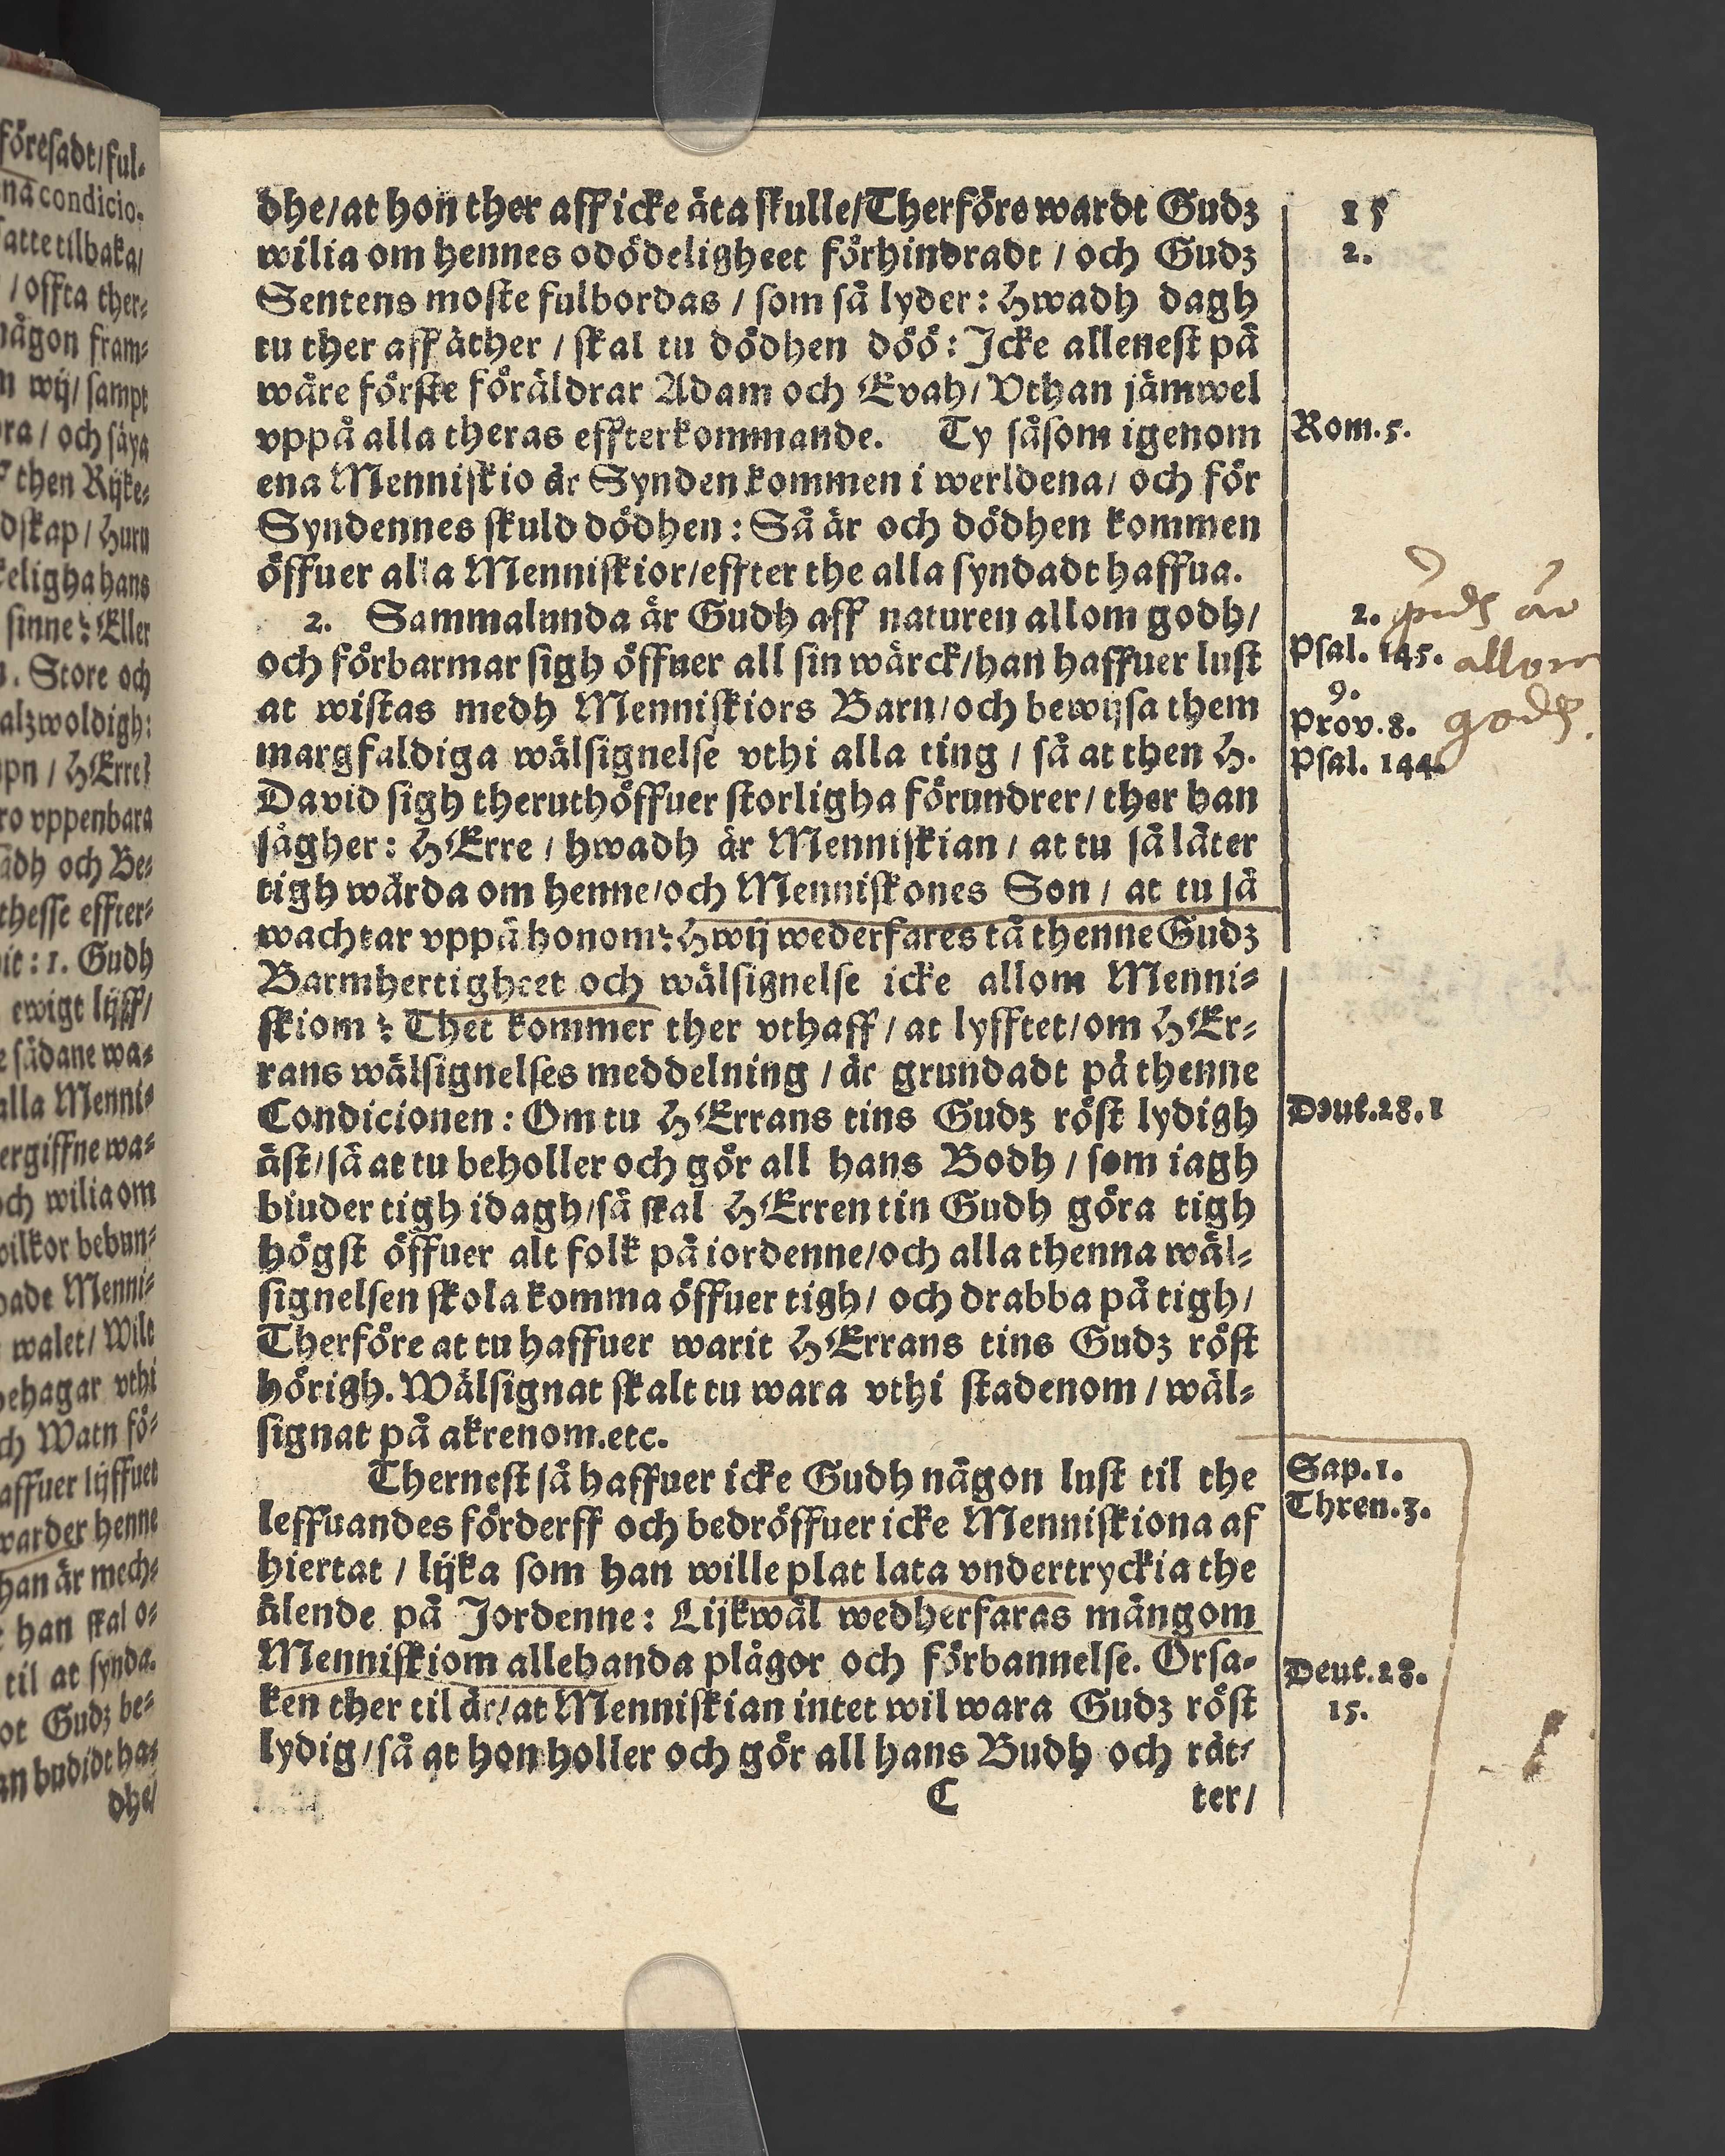 dhe/at hon ther aff icke äta skulle/Therföre wardt Gudz
wilia om hennes odödeligheet förhindradt / och Gudz
Sentens moste fulbordas / som så lyder: Hwadh dagh
tu ther aff äther / skal tu dödhen döö: Icke allenest på
wåre förste föräldrar Adam och Evah/ Vthan jämwel
vppå alla theras effterkommande. Ty såsom igenom
ena Menniskio är Synden kommen i werldena/ och för
Syndennes skuld dödhen: Så är och dödhen kommen
öffuer alla Menniskior/effter the alla syndadt haffua.
2. Sammalunda är Gudh aff naturen allom godh/
och förbarmar sigh öffuer all sin wärck/han haffuer lust
at wistas medh Menniskiors Barn/och bewijsa them
margfaldiga wälsignelse vthi alla ting / så at then H.
David sigh theruthöffuer storligha förundrer/ ther han
sägher: HErre / hwadh är Menniskian / at tu så läter
tigh wårda om henne/och Menniskones Son / at tu så
wachtar vppå honom? Hwij wederfares tå thenne Gudz
Barmhertigheet och wälsignelse icke allom Menni-
skiom? Thet kommer ther vthaff/ at lyfftet/om HEr-
rans wälsignelses meddelning / är grundadt på thenne
Condicionen: Om tu HErrans tins Gudz röst lydigh
äst/så at tu beholler och gör all hans Bodh / som iagh
biuder tigh idagh/så skal HErren tin Gudh göra tigh
högst öffuer alt folk på iordenne/och alla thenna wäl-
signelsen skola komma öffuer tigh/ och drabba på tigh/
Therföre at tu haffuer warit HErrans tins Gudz röst
hörigh. Wälsignat skalt tu wara vthi stadenom / wäl-
signat på akrenom.etc.
Thernest så haffuer icke Gudh någon lust til the
leffuandes förderff och bedröffuer icke Menniskiona af
hiertat / lijka som han wille plat lata vndertryckia the
älende på Jordenne: Lijkwäl wedherfaras mångom
Menniskiom allehanda plågor och förbannelse. Orsa-
ken ther til är/at Menniskian intet wil wara Gudz röst
lydig/så at hon holler och gör all hans Budh och rät-
C ter/
15
2.
Rom.5.
2.
Psal. 145.
9.
Prov.8.
Psal. 144.
är
allom
godh.
Deut.28.1
Sap.1.
Thren.3.
Deut.28.
15.
föresadt/ful-
na condicio-
satte tilbaka/
/offta ther-
någon fram-
wij/ sampt
/ och säya
then Rijke-
dskap/ huru
keligha hans
sinne? Eller
. Store och
alzwoldigh:
mpn / HErre?
ro vppenbara
ådh och Be-
thesse effter-
it: 1. Gudh
ewigt lijff/
sådane wa-
alla Menni-
ergiffne wa-
och wilia om
vilkor bebun-
pade Menni-
walet/ Wilt
behagar vthi
ch Watn fö-
affuer lijffuet
warder henne
han är mech-
han skal o-
til at synda.
ot Gudz be-
an budidt ha-
dhe/